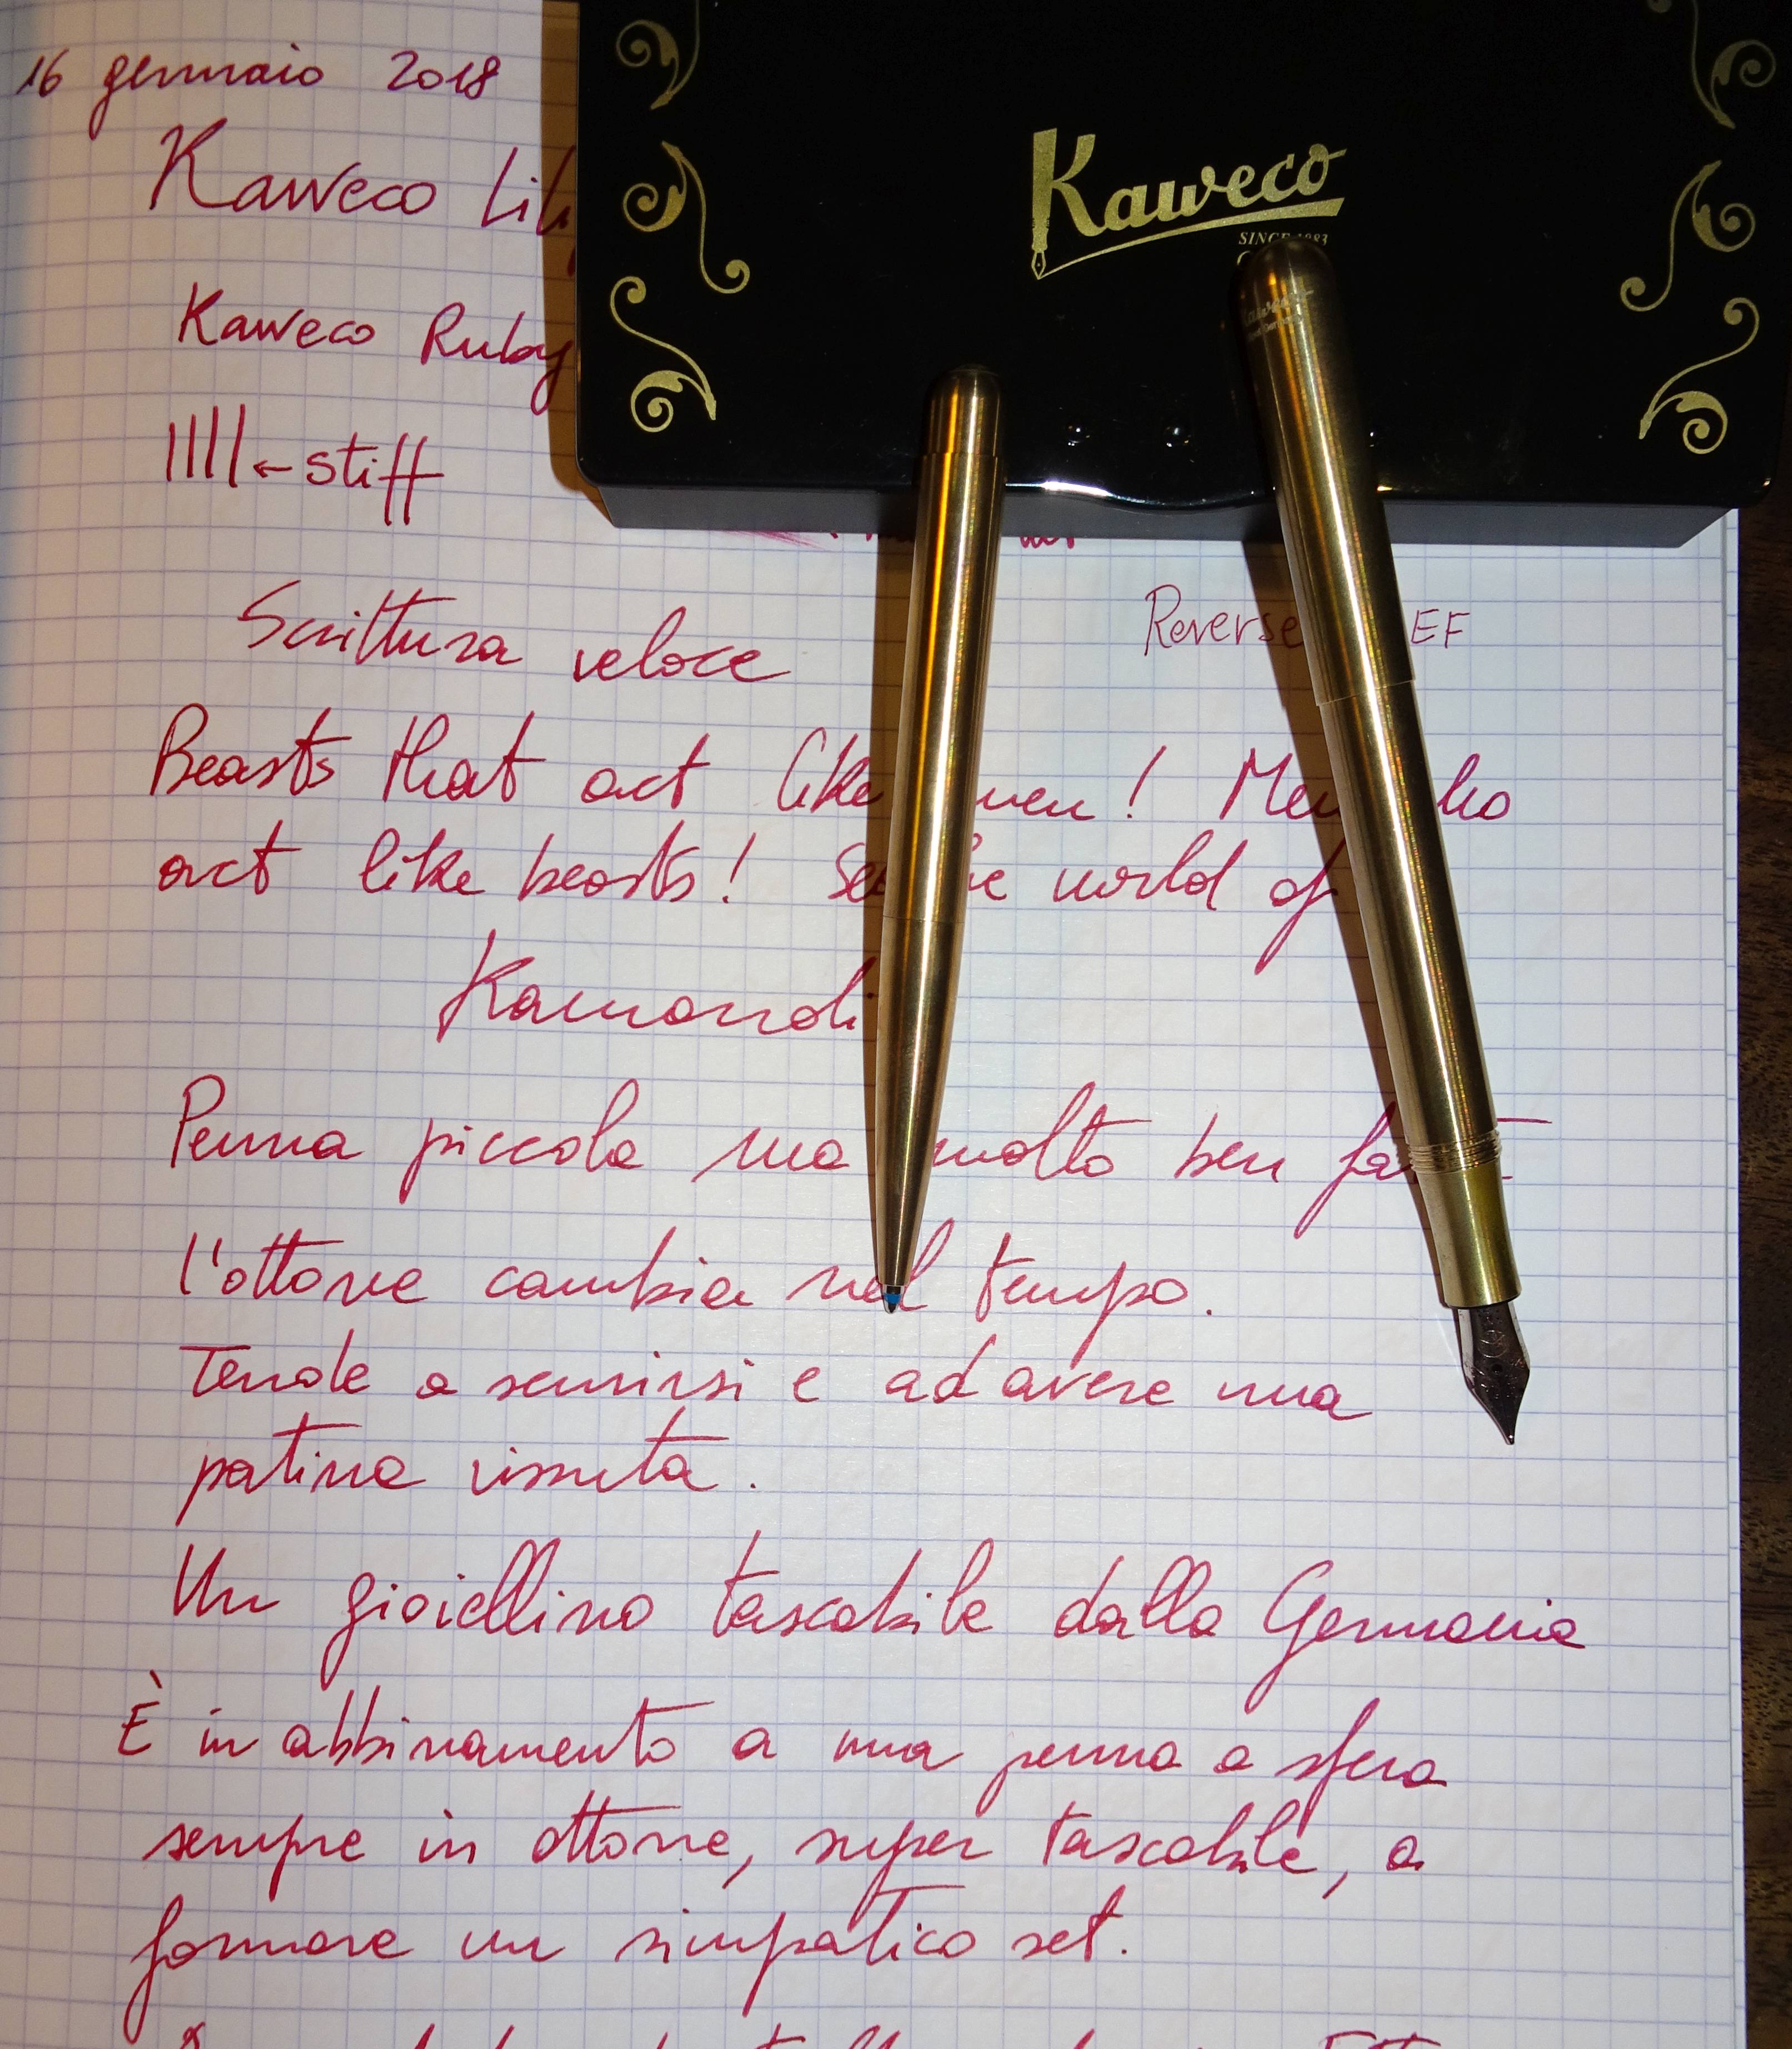 16 gennaio 2018
Kaweco
Kaweco
SINCE
Kaweco Ruby
←stiff
Scrittura veloce
Reverse EF
Beasts that act like men! Men
act like beasts! world of
Penna piccola ma molto ben
l'ottone cambia nel tempo.
Tende a scurirsi e ad avere una
patina vissuta.
Un gioiellino tascabile dalla Germania
È in abbinamento a una penna a sfera
sempre in ottone, super tascabile, a
formare un simpatico set.